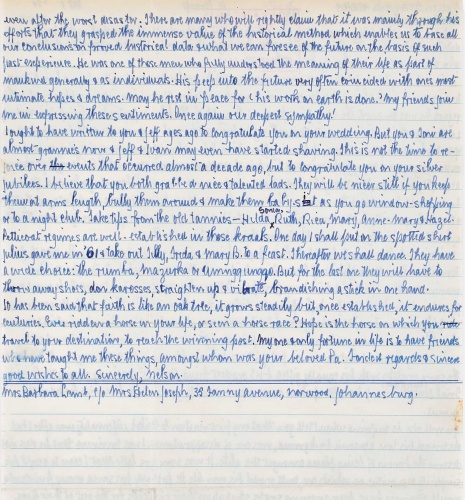 even after the worst disaster. There are many who will rightly claim that it was mainly through his
efforts that they grasped the immense value of the historical method which enables us to base all
our conclusions on proved historical data & what we can foresee of the future on the basis of such
past experience. He was one of those men who fully understood the meaning of their life as part of
mankind generally & as individuals. His peep into the future very often coincided with ones most
intimate hopes & dreams. May he rest in peace for his work on earth is done. My friends join
me in expressing these sentiments. Once again our deepest sympathy!
I ought to have written to you & Jeff ages ago to congratulate you on your wedding. But you & Toni are
almost grannies now & Jeff & Ivan may even have started shaving. This is not the time to re-
joice over events that occurred almost a decade ago, but to congratulate you on your silver
jubilees. I believe that you both grabbed nice & talented lads. They will be nicer still if you keep
them at arms length, bully them around & make them babysit as you go window-shopping
or to a night club. Take tips from the old tannies – Hilda, Sonia, Ruth, Rica, Mary, Anne-Mary & Hazel.
Petticoat regimes are well-established in those kraals. One day I shall put on the spotted shirt
Julius gave me in '61 & take out Tilly, Freda & Mary B. to a feast. Thereafter we shall dance. They have
a wide choice: the rumba, mazurka or umngqungqo. But for the last one they will have to
throw away shoes, don karosses, straighten up & vibrate, brandishing a stick in one hand.
It has been said that faith is like an oak tree, it grows steadily but, once established, it endures for
centuries. Ever ridden a horse in your life, or seen a horse race? Hope is the horse on which you
travel to your destination, to reach the winning post. My one & only fortune in life is to have friends
who have taught me these things, amongst whom was your beloved Pa. Fondest regards & sincere
good wishes to all. Sincerely, Nelson.
Mrs Barbara Lamb, c/o Mrs Helen Joseph, 35 Fanny Avenue, Norwood. Johannesburg.